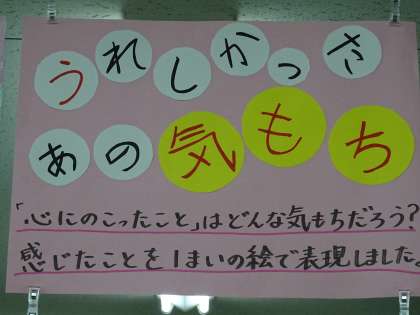 うれしかっさ
あの気もち
「心にのこったこと」はどんな気もちだろう?
感じたことを1まいの絵で表現しました。